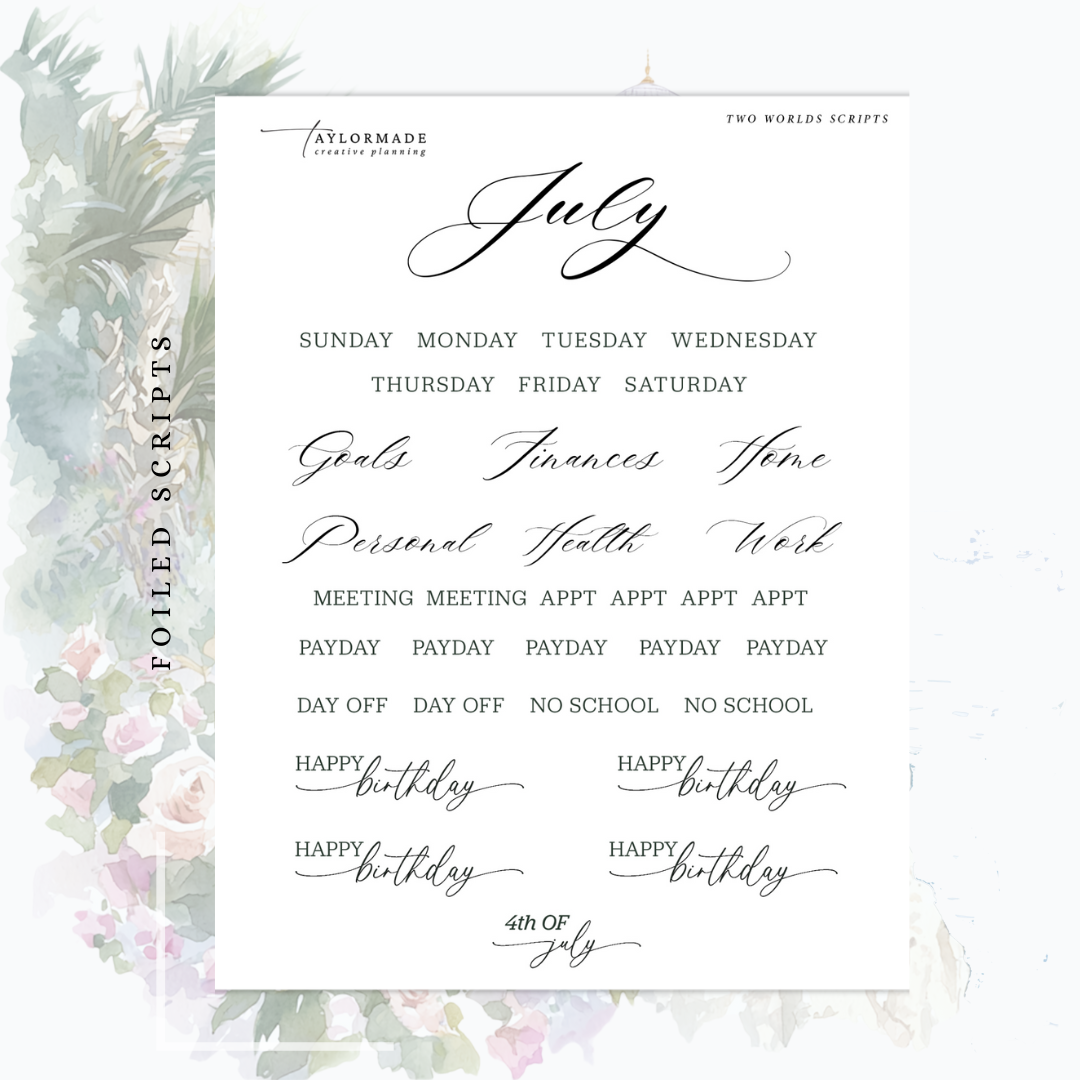 TAYLORMADE
creative planning
TWO WORLDS SCRIPTS
July
SUNDAY MONDAY TUESDAY WEDNESDAY
THURSDAY FRIDAY SATURDAY
Goals Finances Home
Personal Health Work
MEETING MEETING APPT APPT APPT APPT
PAYDAY PAYDAY PAYDAY PAYDAY PAYDAY
DAY OFF DAY OFF NO SCHOOL NO SCHOOL
HAPPY birthday HAPPY birthday
HAPPY birthday HAPPY birthday
4th OF
july
FOILED SCRIPTS